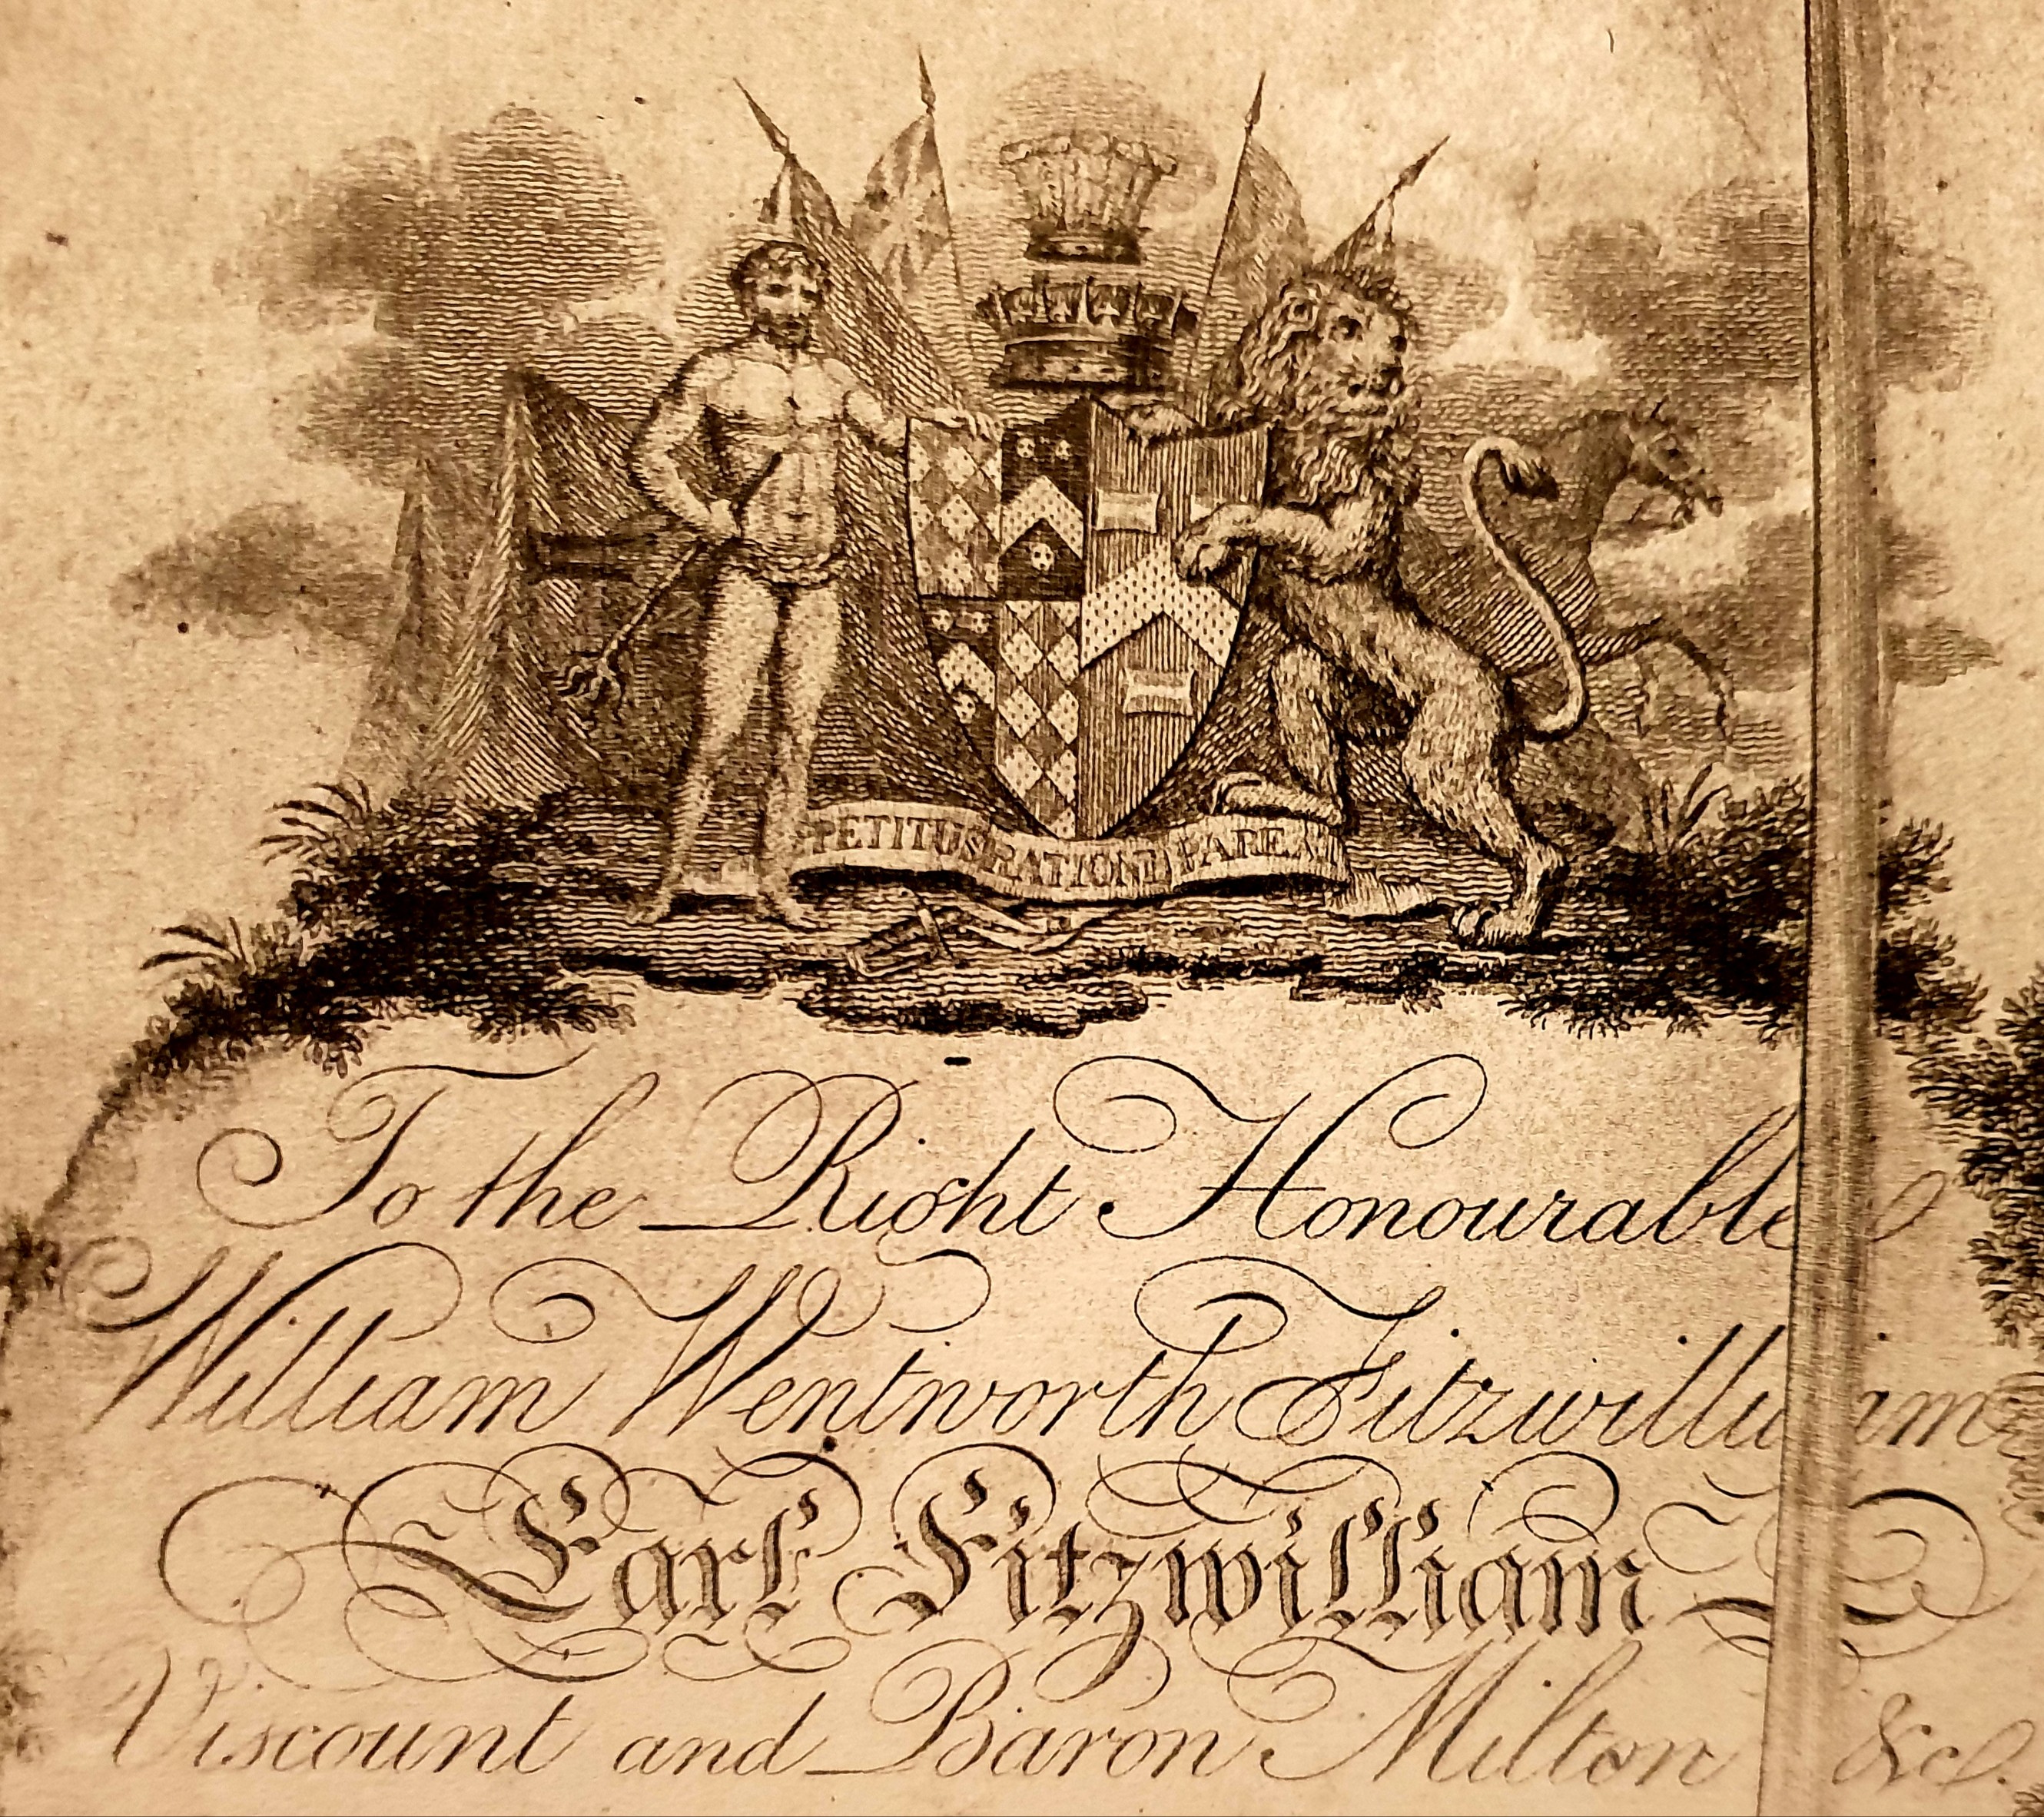 PETITUS RATIONI PAREA
To the Right Honourable
William Wentworth Fitzwilliam
Earl Fitzwilliam
Viscount and Baron Milton &c.